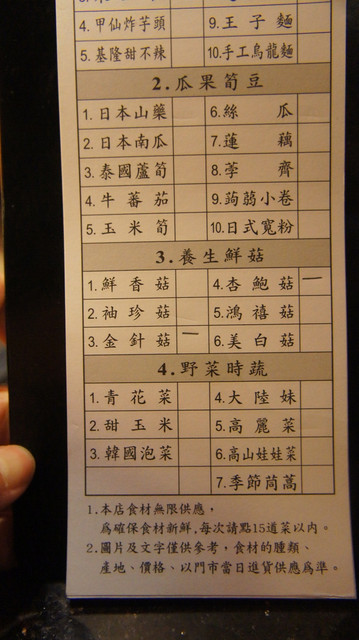 4. 甲仙炸芋頭 9. 王子麵
5. 基隆甜不辣 10. 手工烏龍麵
2. 瓜果筍豆
1. 日本山藥 6. 絲瓜
2. 日本南瓜 7. 蓮藕
3. 泰國蘆筍 8. 荸薺
4. 牛蕃茄 9. 蒟蒻小卷
5. 玉米筍 10. 日式寬粉
3. 養生鮮菇
1. 鮮香菇 4. 杏鮑菇
2. 袖珍菇 5. 鴻禧菇
3. 金針菇 6. 美白菇
4. 野菜時蔬
1. 青花菜 4. 大陸妹
2. 甜玉米 5. 高麗菜
3. 韓國泡菜 6. 高山娃娃菜
7. 季節茼蒿
1. 本店食材無限供應，
為確保食材新鮮,每次請點15道菜以內。
2. 圖片及文字僅供參考，食材的種類、
產地、價格、以門市當日進貨供應為準。